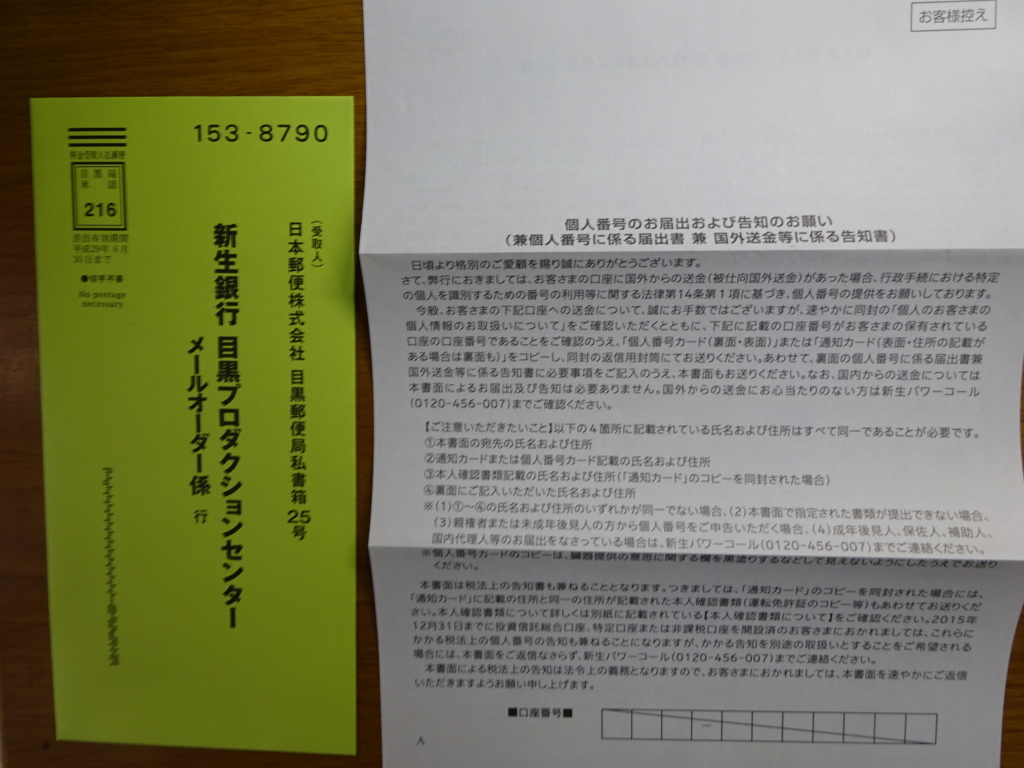 153-8790
料金受取人払郵便
目黒局
承認
216
差出有効期間
平成29年6月
30日まで
●切手不要
No postage
necessary
(受取人)
日本郵便株式会社 目黒郵便局私書箱25号
新生銀行 目黒プロダクションセンター
メールオーダー係 行
お客様控え
個人番号のお届出および告知のお願い
(兼個人番号に係る届出書 兼 国外送金等に係る告知書)
日頃より格別のご愛顧を賜り誠にありがとうございます。
さて、弊行におきましては、お客さまの口座に国外からの送金(被仕向国外送金)があった場合、行政手続における特定
の個人を識別するための番号の利用等に関する法律第14条第1項に基づき、個人番号の提供をお願いしております。
今般、お客さまの下記口座への送金について、誠にお手数ではございますが、速やかに同封の「個人のお客さまの
個人情報のお取扱いについて」をご確認いただくとともに、下記に記載の口座番号がお客さまの保有されている
口座の口座番号であることをご確認のうえ、「個人番号カード(裏面・表面)」または「通知カード(表面・住所の記載が
ある場合は裏面も)」をコピーし、同封の返信用封筒にてお送りください。あわせて、裏面の個人番号に係る届出書兼
国外送金等に係る告知書に必要事項をご記入のうえ、本書面もお送りください。なお、国内からの送金については
本書面によるお届出及び告知は必要ありません。国外からの送金にお心当たりのない方は新生パワーコール
(0120-456-007)までご確認ください。
【ご注意いただきたいこと】以下の4箇所に記載されている氏名および住所はすべて同一であることが必要です。
①本書面の宛先の氏名および住所
②通知カードまたは個人番号カード記載の氏名および住所
③本人確認書類記載の氏名および住所(「通知カード」のコピーを同封された場合)
④裏面にご記入いただいた氏名および住所
※(1)①~④の氏名および住所のいずれかが同一でない場合、(2)本書面で指定された書類が提出できない場合、
(3)親権者または未成年後見人の方から個人番号をご申告いただく場合、(4)成年後見人、保佐人、補助人、
国内代理人等のお届出をなさっている場合は、新生パワーコール(0120-456-007)までご連絡ください。
※個人番号カードのコピーは、臓器提供の意思に関する欄を黒塗りするなどして見えないようにしたうえでお送り
ください。
本書面は税法上の告知書も兼ねることとなります。つきましては、「通知カード」のコピーを同封された場合には、
「通知カード」に記載の住所と同一の住所が記載された本人確認書類(運転免許証のコピー等)もあわせてお送りくだ
さい。本人確認書類について詳しくは別紙に記載されている【本人確認書類について】をご確認ください。2015年
12月31日までに投資信託総合口座、特定口座または非課税口座を開設済のお客さまにおかれましては、これらに
かかる税法上の個人番号の告知も兼ねることになりますが、かかる告知を別途の取扱いとすることをご希望される
場合には、本書面をご返信なさらず、新生パワーコール(0120-456-007)までご連絡ください。
本書面による税法上の告知は法令上の義務となりますので、お客さまにおかれましては、本書面を速やかにご返信
いただきますようお願い申し上げます。
■口座番号■
A